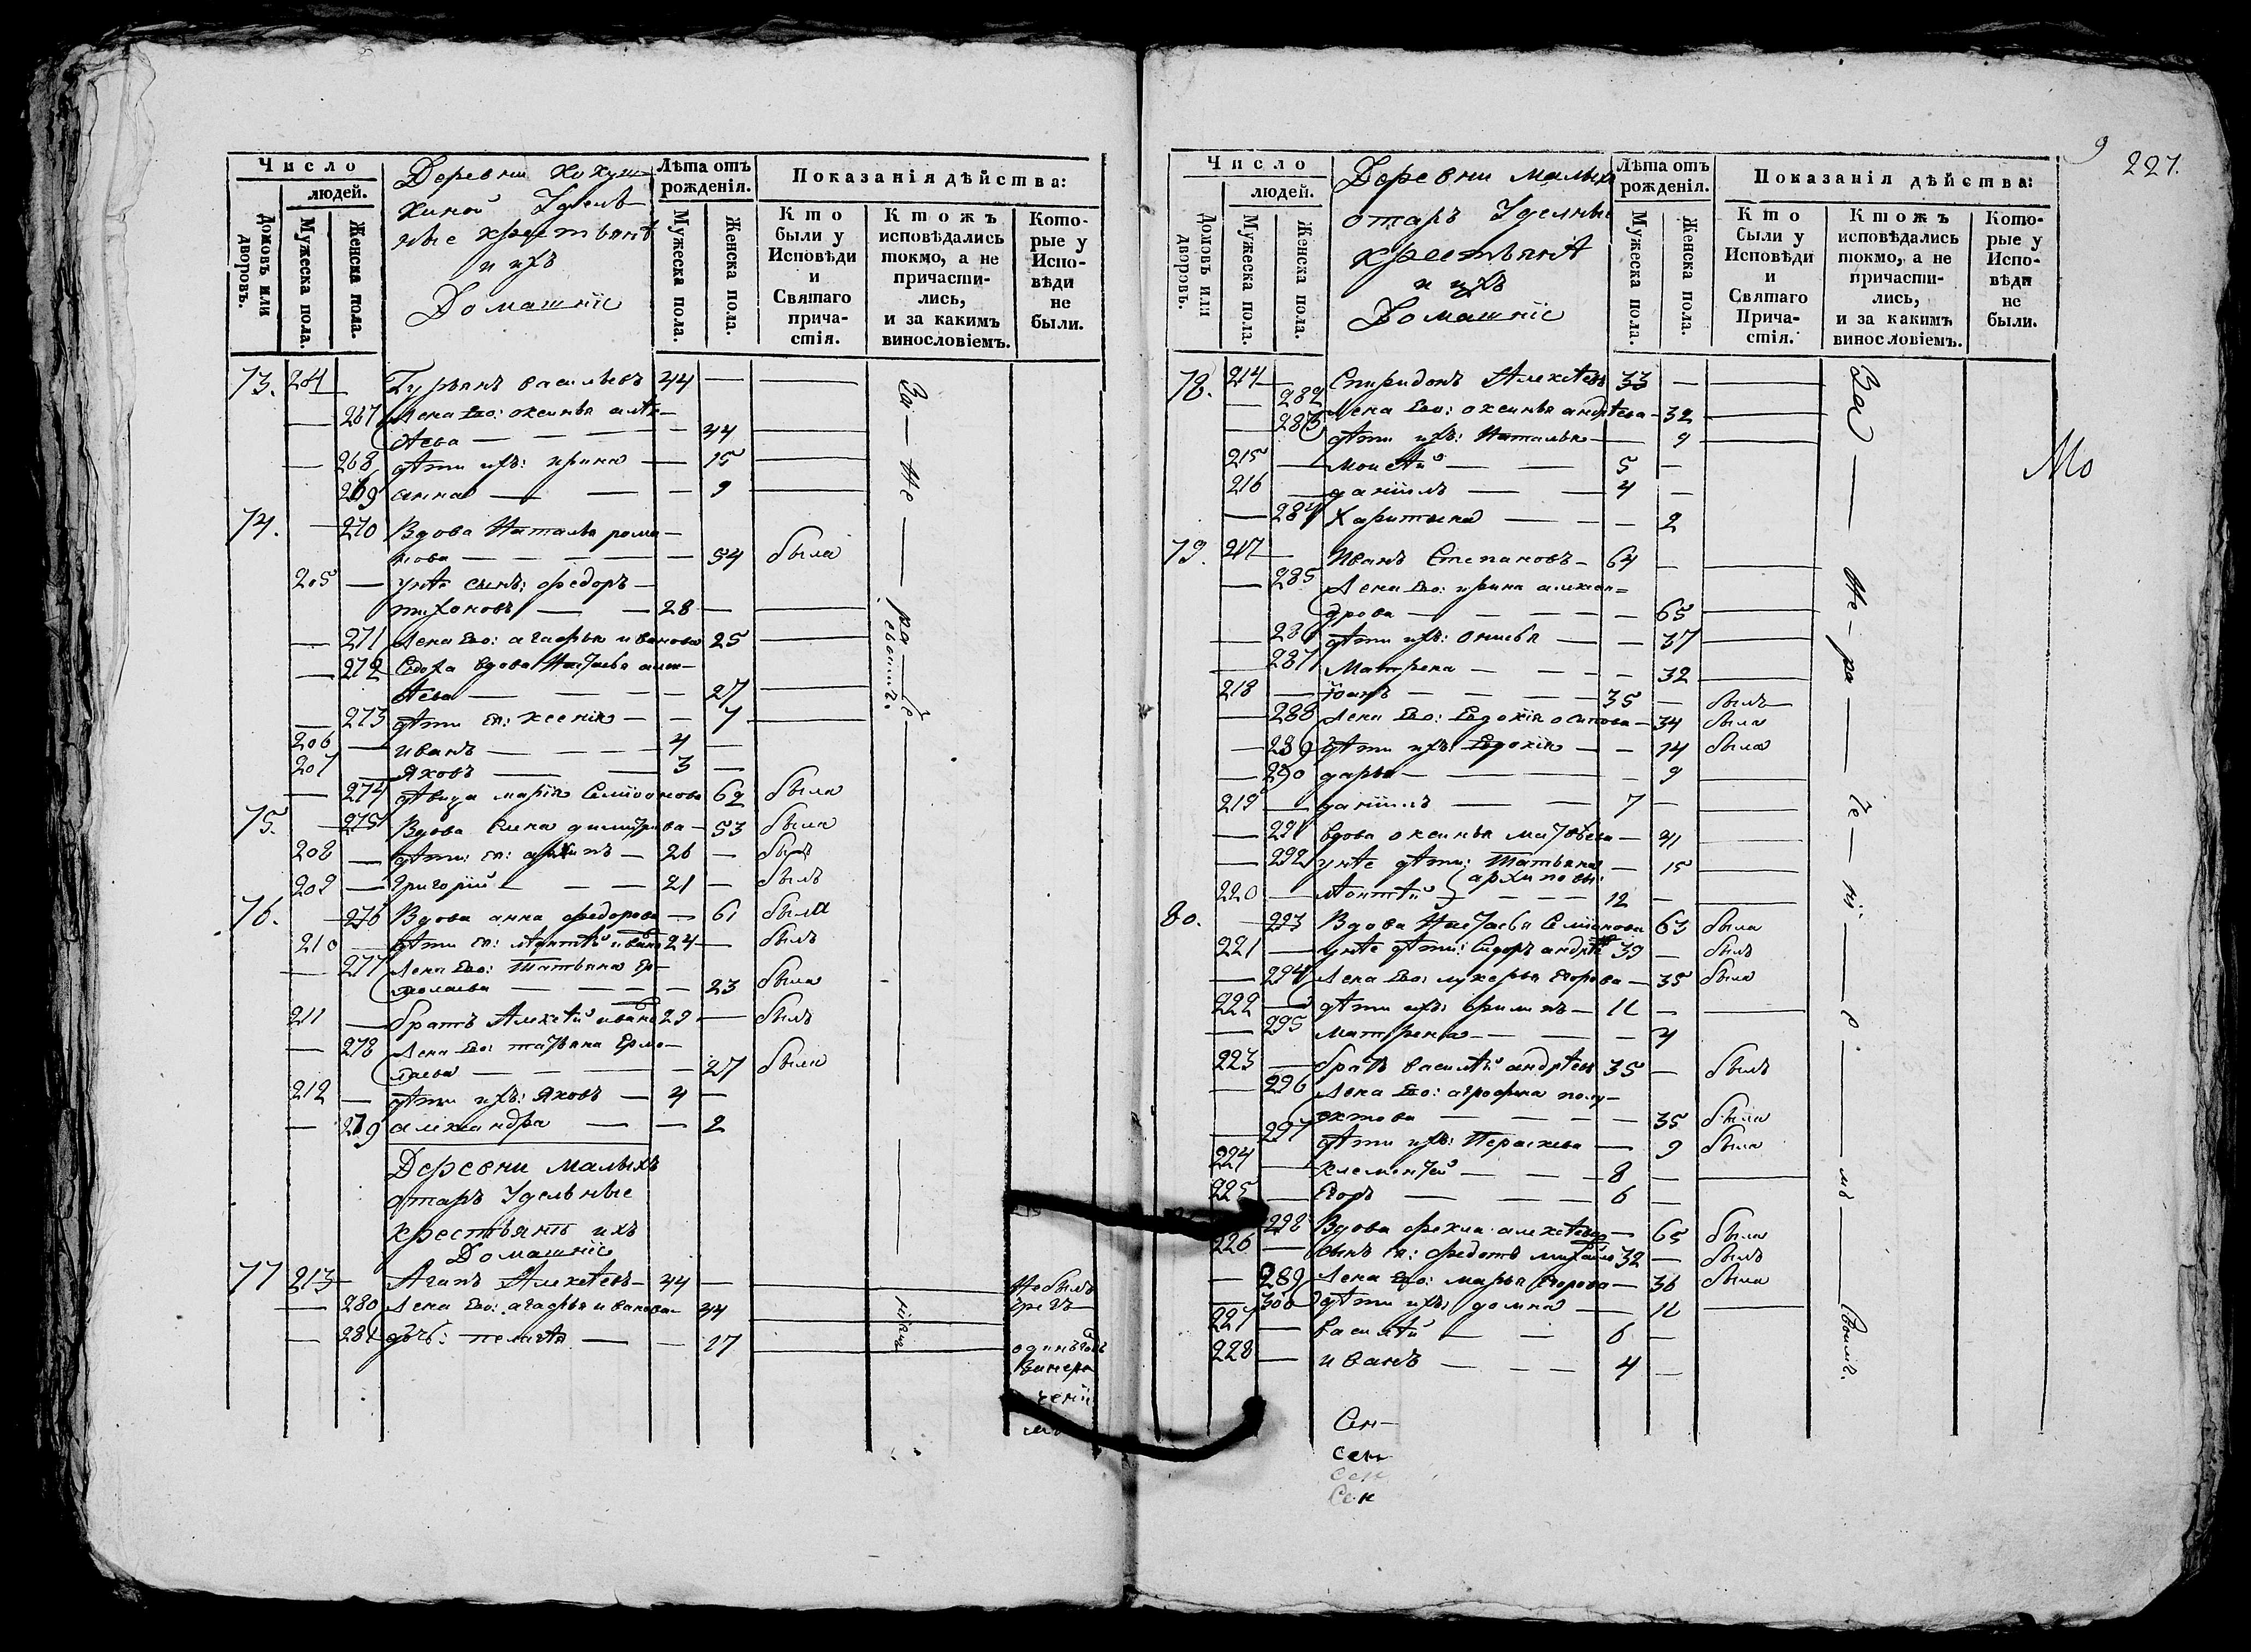 Число
людей.
Домовъ или дворовъ.
Мужеска пола.
Женска пола.
Деревни Кокуш
киной Удель
ные крестьянѣ
и ихъ
Домашніе
Лѣта отъ рожденія.
Мужеска пола.
Женска пола.
Показанія дѣйства:
Кто были у Исповѣди и Святаго причастія.
Ктожъ исповѣдались токмо, а не причастились, и за какимъ винословіемъ.
Которые у Исповѣди не были.
73. 204 Гурьянъ васильевъ 44
267 Жена Его: аксинья алек
сѣева 44
268 дѣти ихъ: ирина 15
269 анна 9
74. 270 Вдова Наталья рома
нова 54 была
205 унее сынъ: федоръ
тихоновъ 28
271 Жена Его: агафья иванова 25
272 Сноха вдова Настасья алек
сѣева 27
273 дѣти ея: ксенія 7
206 иванъ 4
207 Яковъ 3
274 дѣвица марія Семіонова 62 была
75. 275 Вдова Елена димитріева 53 была
208 дѣти: ея: архипъ 26 былъ
209 григорій 21 былъ
76. 276 Вдова анна федорова 61 была
210 дѣти ея: леонтѣй ивано 24 былъ
277 Жена Его: татьяна Ер
молаева 23 была
211 братъ Алексѣй ивано 29 былъ
278 Жена Его: татьяна Ермо
лаева 27 была
212 дѣти ихъ: Яковъ 4
279 александра 2
Деревни малыхъ
отаръ Удельные
крестьянѣ ихъ
Домашніе
77 213 Агапъ Алексѣевъ 44
280 Жена Его: агафья иванова 44
281 дочь: пелагѣя 17
За не ра че
ніемъ
Небылъ
чрезъ
одинъ годъ
занера
чені
мъ
9 227.
Число
людей.
Домовъ или дворовъ.
Мужеска пола.
Женска пола.
Деревни малых
отаръ Уделные
крестьянѣ
и ихъ
Домашніе
Лѣта отъ рожденія.
Мужеска пола.
Женска пола.
Показанія дѣйства:
Кто были у Исповѣди и Святаго Причастія.
Ктожъ исповѣдались токмо, а не причастились, и за какимъ винословіемъ.
Которые у Исповѣди не были.
78. 214 Спиридонъ Алексѣевъ 33
282 Жена Его: аксинья андрѣева 32
283 дѣти ихъ: Наталья 9
215 моисѣй 5
216 даніилъ 4
284 Харитина 2
79. 217 Иванъ Степановъ 64
285 Жена Его: ирина алексан
дрова 65
286 дѣти ихъ: акилина 37
287 Матрена 32
218 35 былъ
288 Жена Его: Евдокія осипова 34 была
289 дѣти ихъ: Евдокія 14 была
290 дарья 9
219 даніилъ 7
291 вдова аксинья матвѣева 41
292 унее дѣти: татьяна 15
архиповы:
220 леонтѣй 12
80. 293 Вдова Настасья Семіонова 63 была
221 унее дѣти: Сидоръ андрѣе 39 былъ
294 Жена Его: лукерья Егорова 35 была
222 дѣти ихъ: филипъ 11
295 матрена 4
223 братъ василѣй андрѣевъ 35 былъ
296 Жена Его: аграфена полу
ектова 35 была
297 дѣти ихъ: Параскева 9 была
224 клементѣй 8
225 Егоръ 6
298 Вдова фекла алексѣева 65 была
226 сынъ ея: федотъ михайло 32 былъ
289 Жена Его: марья Егорова 36 была
300 дѣти ихъ: домна 11
227 василѣй 6
228 иванъ 4
За не ра че ні е мъ
Мо
Сен
сен
сен
Сен